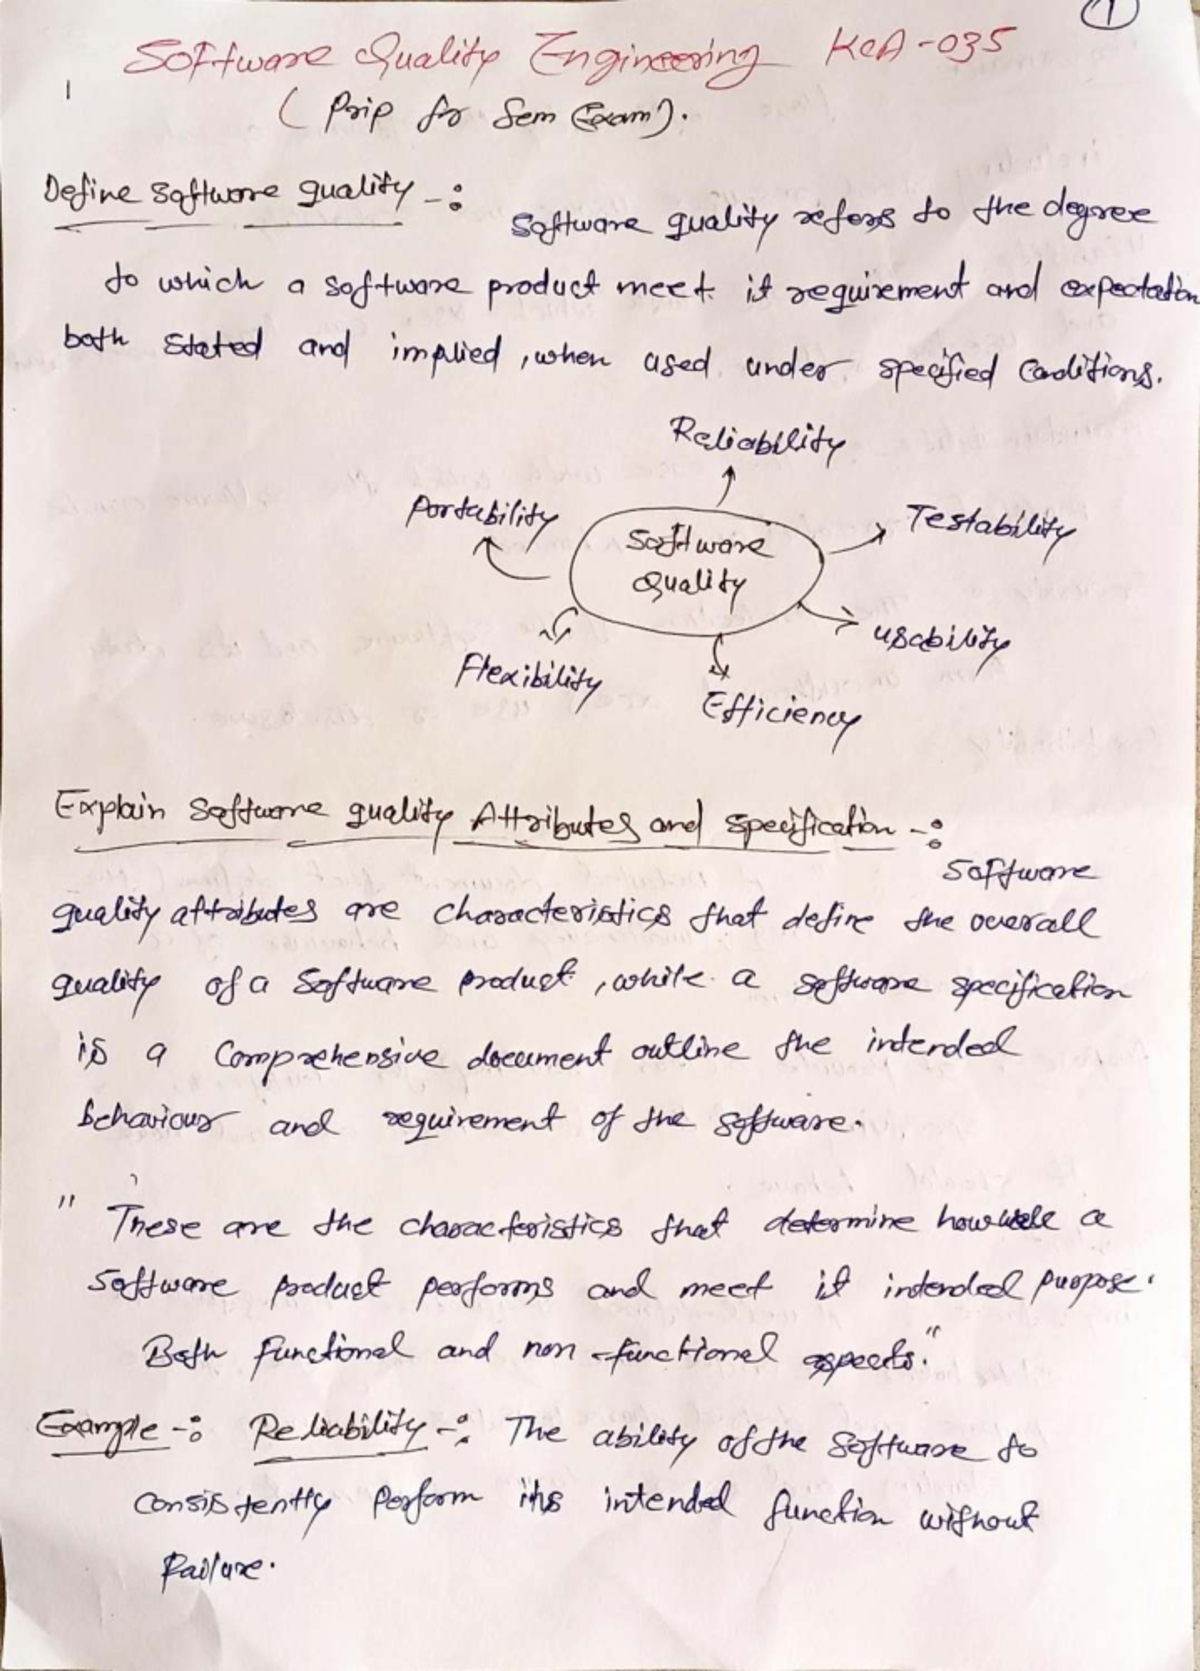 1
Software Quality Engineering KCA-035
( Prip for Sem Exam).
Define Software quality -:
Software quality refers to the degree
to which a software product meet it requirement and expectation
both stated and implied, when used under specified conditions.
Reliability
Portability
Testability
Software
Quality
usability
Flexibility
Efficiency
Explain Software quality Attributes and specification -:
Software
quality attributes are characteristics that define the overall
quality of a Software product, while a software specification
is a Comprehensive document outline the intended
behaviour and requirement of the software.
" These are the characteristics that determine how well a
Software product performs and meet it intended purpose.
Both functional and non-functional aspects."
Example -: Reliability -: The ability of the Software to
consistently perform its intended function without
failure.